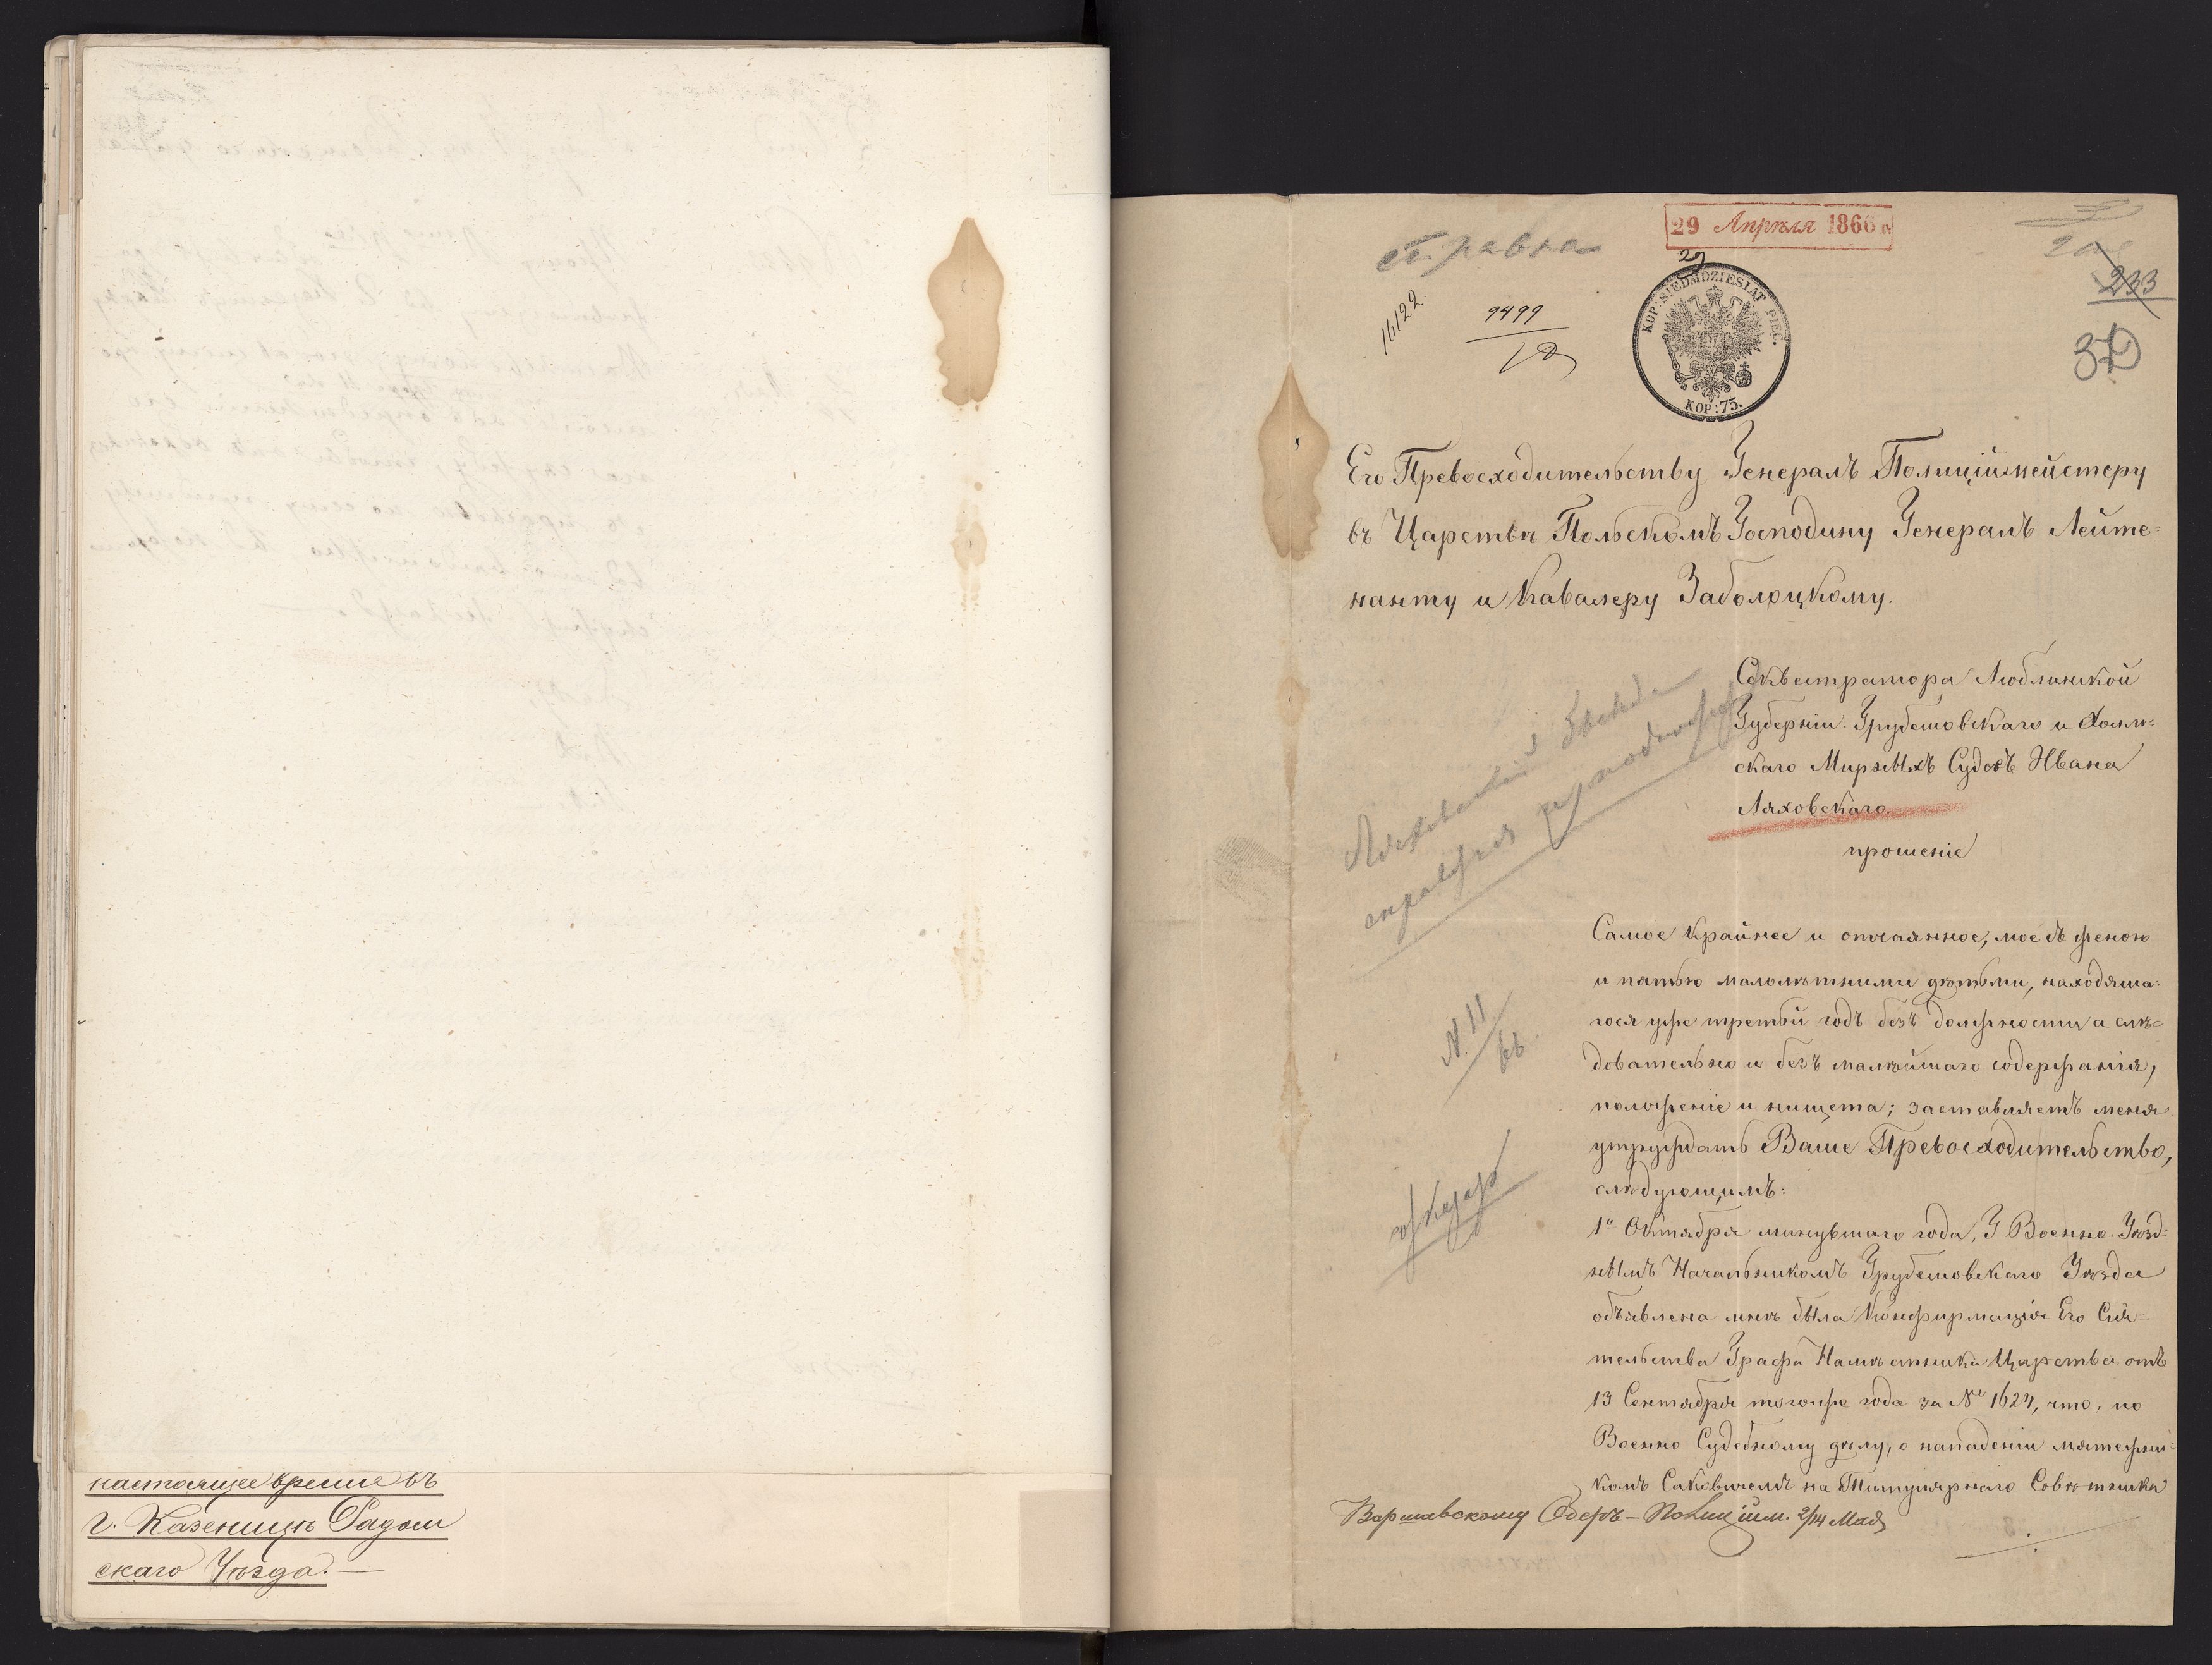 настоящее время въ
г. Казеницѣ Радом
скаго Уѣзда.—
справка
29 Апрѣля 1866 г.
29
233
30
14122
9499
KOP: SIEDMDZIESIĄT PIĘĆ.
KOP: 75.
Его Превосходительству Генералъ Полиціймейстеру
въ Царствѣ Польскомъ Господину Генералъ Лейте=
нанту и Кавалеру Заболоцкому.
Секвестратора Люблинской
Губерніи Грубешовскаго и Холм=
скаго Мирныхъ Судовъ Ивана
Ляховскаго.
прошеніе
Самое крайнее и отчаянное, мое съ женою
и пятью малолѣтними дѣтьми, находяща=
гося уже третьй годъ безъ должности а слѣ=
довательно и безъ малѣйшаго содержанія,
положеніе и нищета; заставляетъ меня
утруждать Ваше Превосходительство,
слѣдующимъ:
1º Октября минувшаго года, Г Военно-Уѣзд=
нымъ Начальникомъ Грубешовскаго Уѣзда
объявлена мнѣ была Конфирмація Его Сія=
тельства Графа Намѣстника Царства отъ
13 Сентября тогоже года за № 1624, что, по
Военно Судебному дѣлу, о нападеніи мятежни=
комъ Саковичемъ на Титулярнаго Совѣтника
N 11
Варшавскому Оберъ-Полиційм. 2/14 Мая